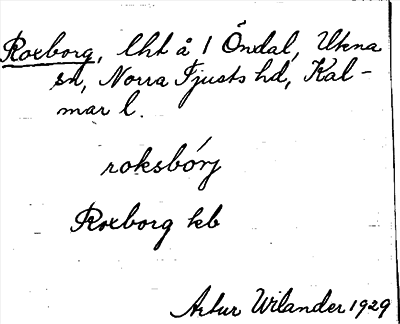 Roxborg, lht å 1 Öndal, Ukna
sn, Norra Tjusts hd, Kal-
mar l.
roksbórj
Roxborg kb
Artur Wilander 1929